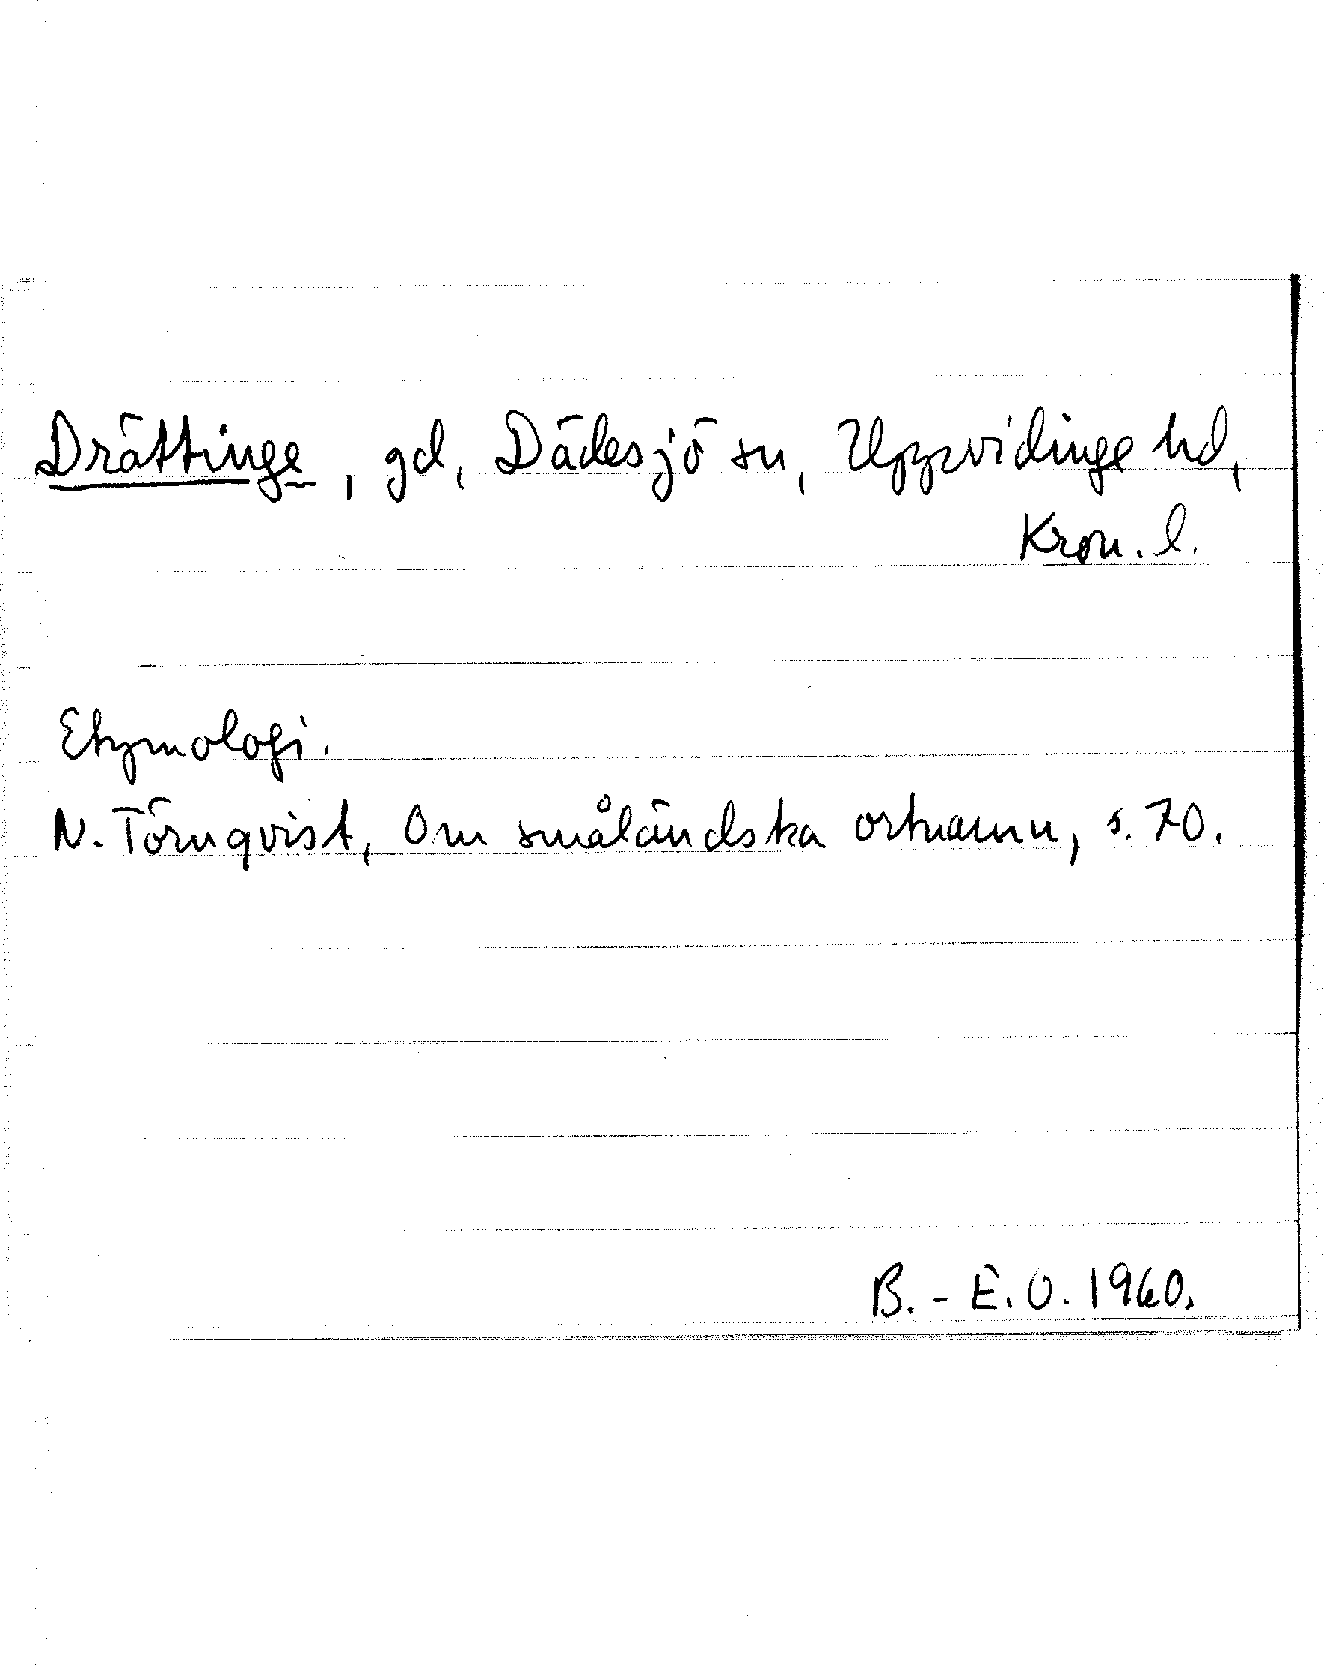 Drättinge, gd, Dädesjö sn, Uppvidinge hd,
Kron. l.
Etymologi.
N. Törnqvist, Om småländska ortnamn, s. 70.
B.-E.O. 1960.